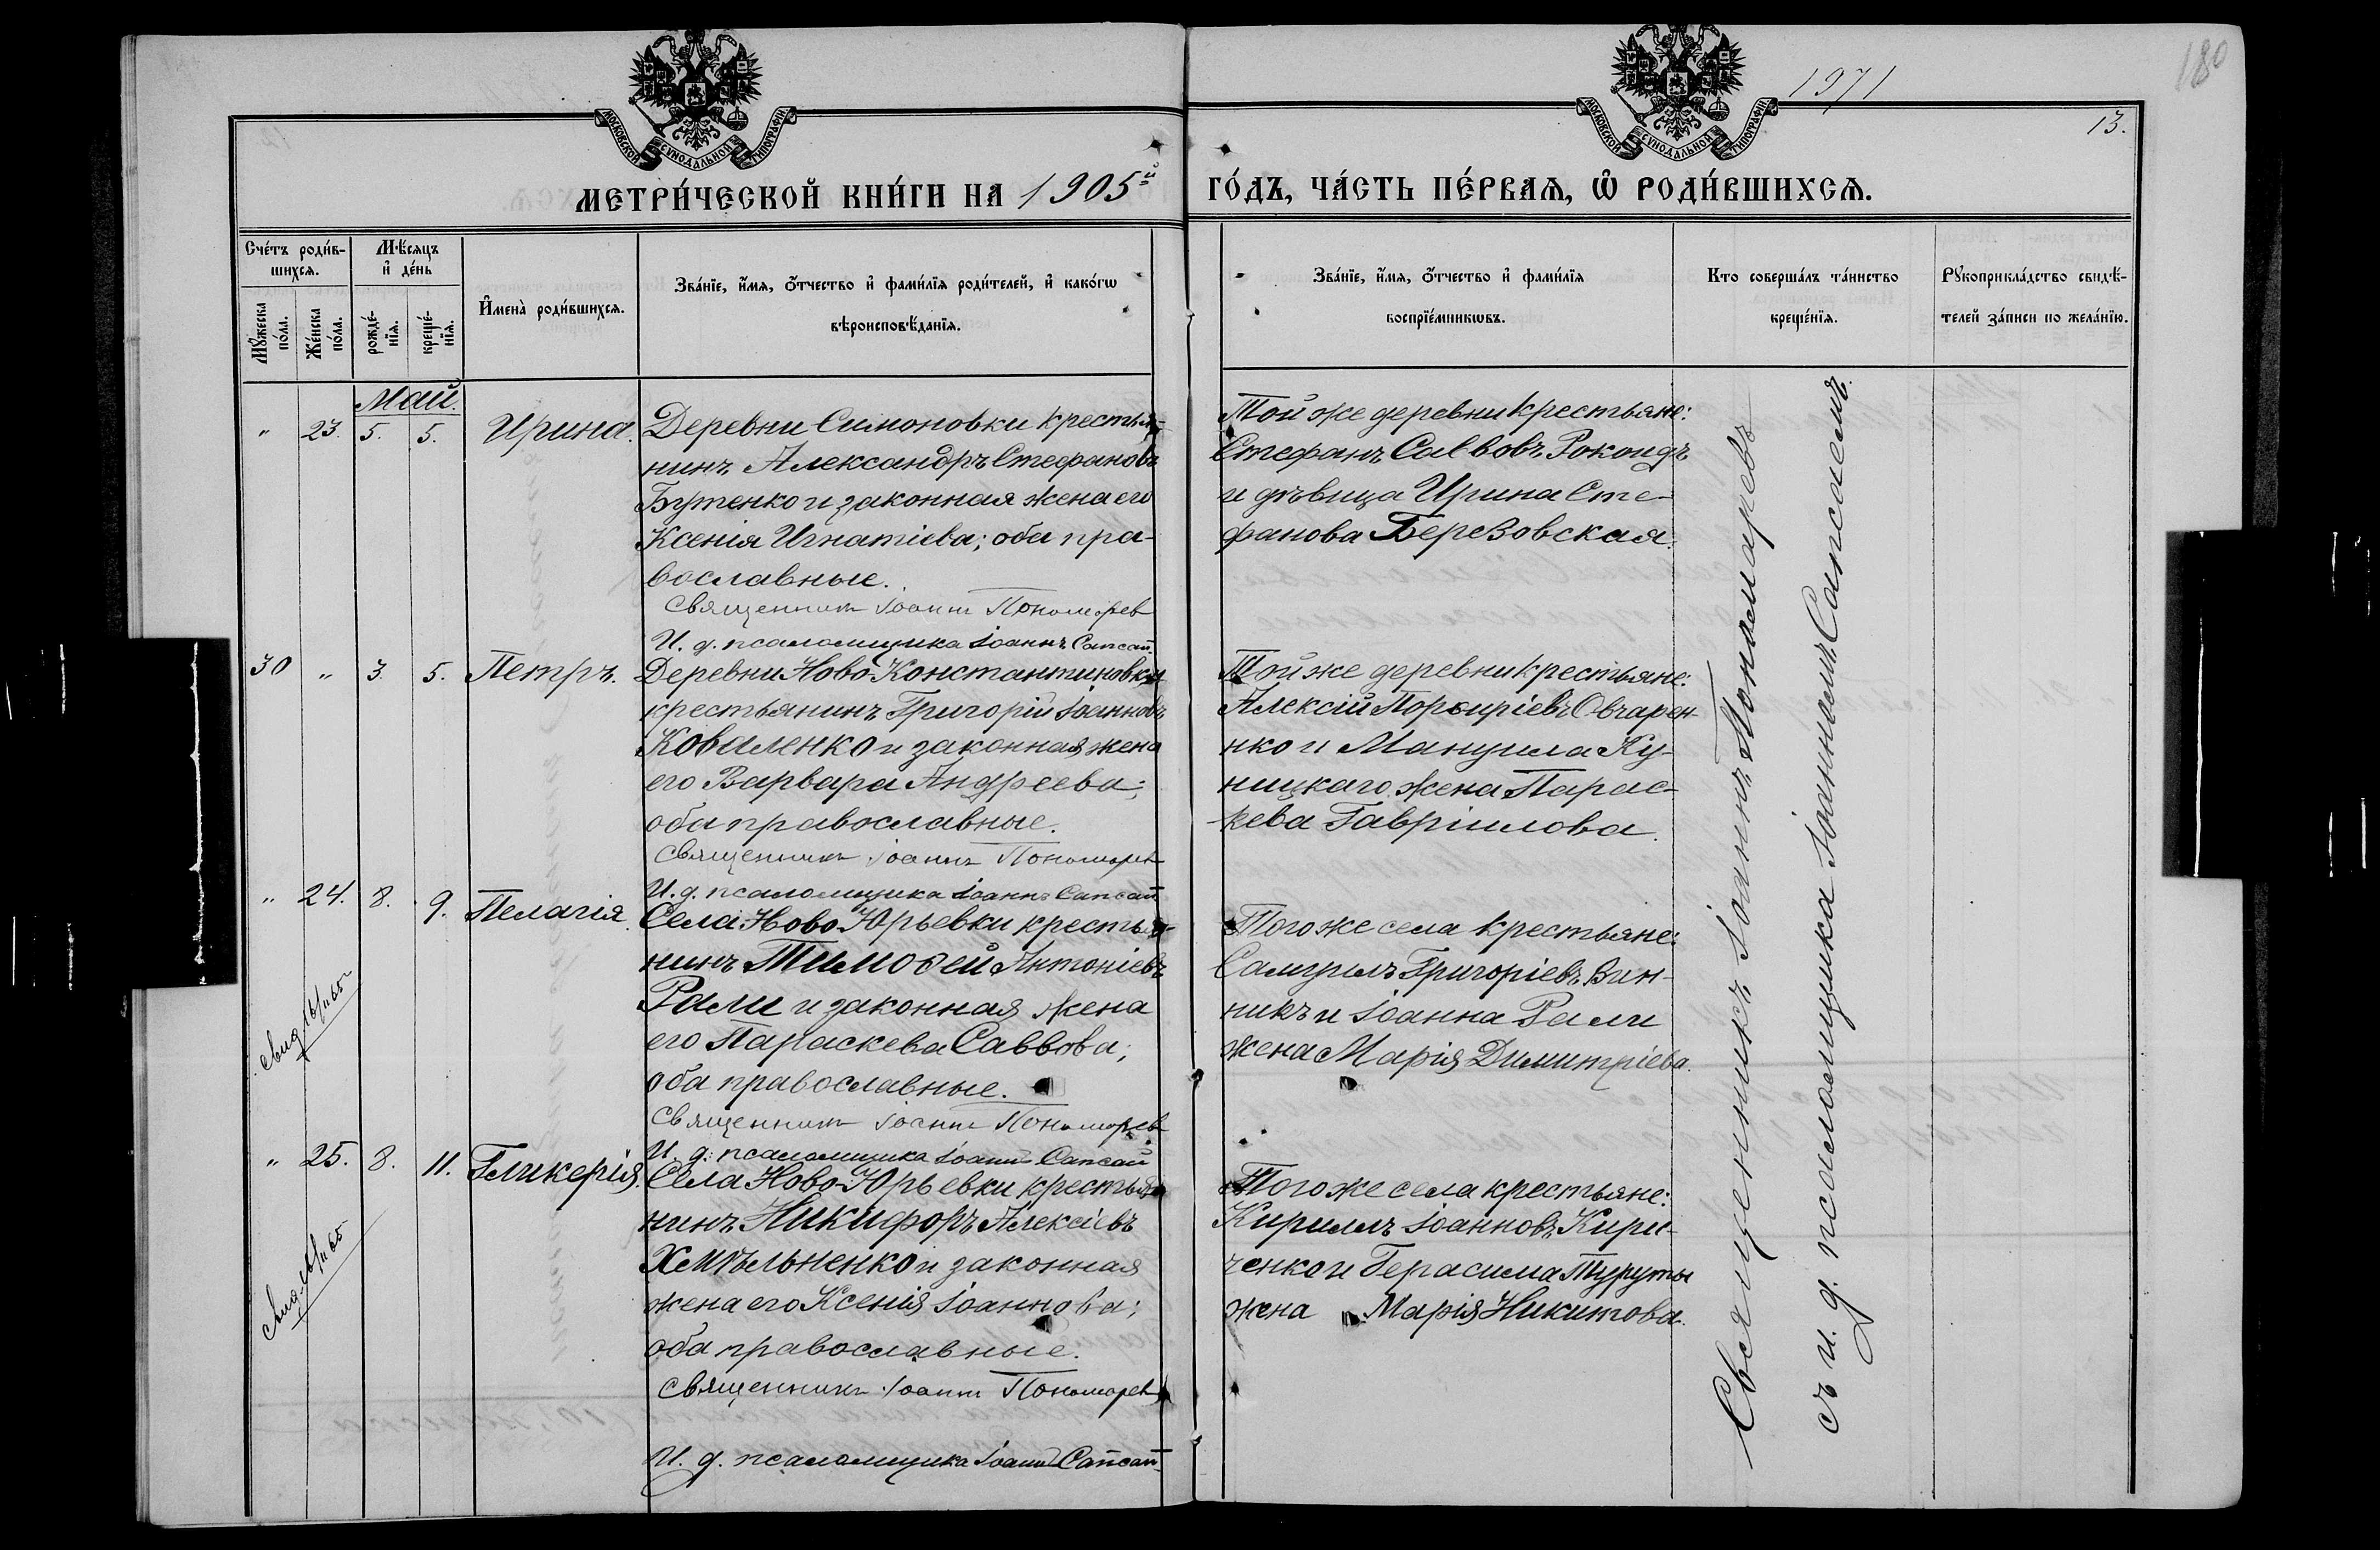 180
1971
13.
МОСКОВСКОЙ СѴНОДАЛЬНОЙ ТИПОГРАФІИ
МОСКОВСКОЙ СѴНОДАЛЬНОЙ ТИПОГРАФІИ
МЕТРИ́ЧЕСКОЙ КНИ́ГИ НА 1905й ГО́ДЪ, ЧА́СТЬ ПЕ́РВАѦ, Ѡ҆ РОДИ́ВШИХСѦ.
Сче́тъ роди́в-
шихсѧ.
Мꙋ́жеска по́ла.
Же́нска по́ла.
Мѣ́сѧцъ
и҆ де́нь
рожде́-
нїѧ.
креще́-
нїѧ.
И҆мена̀ роди́вшихсѧ.
Зва́нїе, и҆́мѧ, ѻ҆́тчество и҆ фами́лїѧ роди́телей, и҆ како́гѡ
вѣроисповѣ́данїѧ.
Зва́нїе, и҆́мѧ, ѻ҆́тчество и҆ фами́лїѧ
воспрїе́мникѡвъ.
Кто соверша́лъ та́инство
креще́нїѧ.
Рꙋкоприкла́дство свидѣ́-
телей за́писи по жела́нїю.
Май.
" 23. 5. 5. Ирина.
Деревни Симоновки крестья-
нинъ Александръ Стефановъ
Бутенко и законная жена его
Ксенія Игнатіева; оба пра-
вославные.
Священникъ Іоаннъ Пономаревъ
И. д. псаломщика Іоаннъ Сапсай
Той же деревни крестьяне:
Стефанъ Саввовъ
и дѣвица Ирина Сте-
фанова Березовская.
30 " 3. 5. Петръ.
Деревни Ново-Константиновки
крестьянинъ Григорій Іоанновъ
Коваленко и законная жена
его Варвара Андреева;
оба православные.
Священникъ Іоаннъ Пономаревъ
И. д. псаломщика Іоаннъ Сапсай
Той же деревни крестьяне:
Алексій Порѳиріевъ Овчарен-
нко и Мануила Ку-
ницкаго жена Парас-
кева Гавріилова.
" 24. 8. 9. Пелагія.
Села Ново-Юрьевки крестья-
нинъ Тимоѳей Антоніевъ
Рали и законная жена
его Параскева Саввова;
оба православные.
Священникъ Іоаннъ Пономаревъ
И. д. псаломщика Іоаннъ Сапсай
Того же села крестьяне:
Самуилъ Григоріевъ Вин-
никъ и Іоанна Рали
жена Марія Димитріева.
" 25. 8. 11. Гликерія.
Села Ново-Юрьевки крестья-
нинъ Никифоръ Алексіевъ
Хмѣльненко и законная
жена его Ксенія Іоаннова;
оба православные.
Священникъ Іоаннъ Пономаревъ
И. д. псаломщика Іоаннъ Сапсай
Того же села крестьяне:
Кириллъ Іоанновъ Кири-
ченко и Герасима Туруты
жена Марія Никитова.
Священникъ Іоаннъ Пономаревъ
съ и. д. псаломщика Іоанномъ Сапсаемъ.